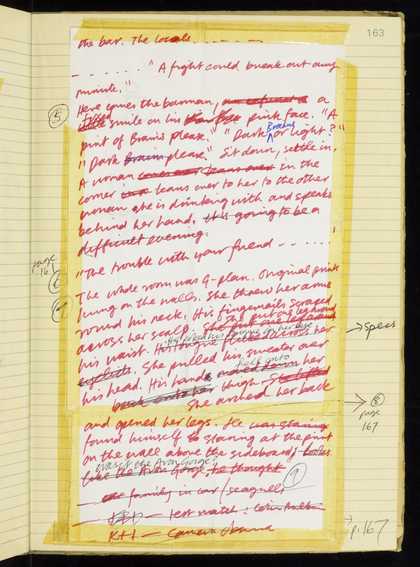 163
the bar. The locale . . . . . .
. . . . . . . "A fight could break out any
minute."
⑤
Here comes the barman, a
fixed smile on his pink face. "A
pint of Brains please." "Dark or light?"
Brains
"Dark Brains please." Sit down, settle in.
A woman in the
corner leans over to her to the other
woman she is drinking with and speaks
behind her hand. It is going to be a
difficult evening.
"The trouble with your friend . . . . . . "
page
161
The whole room was G-plan. Original print
hung on the walls. She threw her arms
round his neck. His fingernails scraped
across her scalp. She put one leg around
his waist. across her
→ specs
eyelids. She pulled his sweater over
his head. His hands moved down her
half onto
thighs. She lifted
She arched her back
→ ⑧
page
167
and opened her legs. He was staring
found himself staring at the print
on the wall above the sideboard, looks
was it the Avon Gorge?
like the Avon Gorge, he thought
⑨
— family in car / seagulls
— test match :
K + 1 — camera obscura
→ p. 167